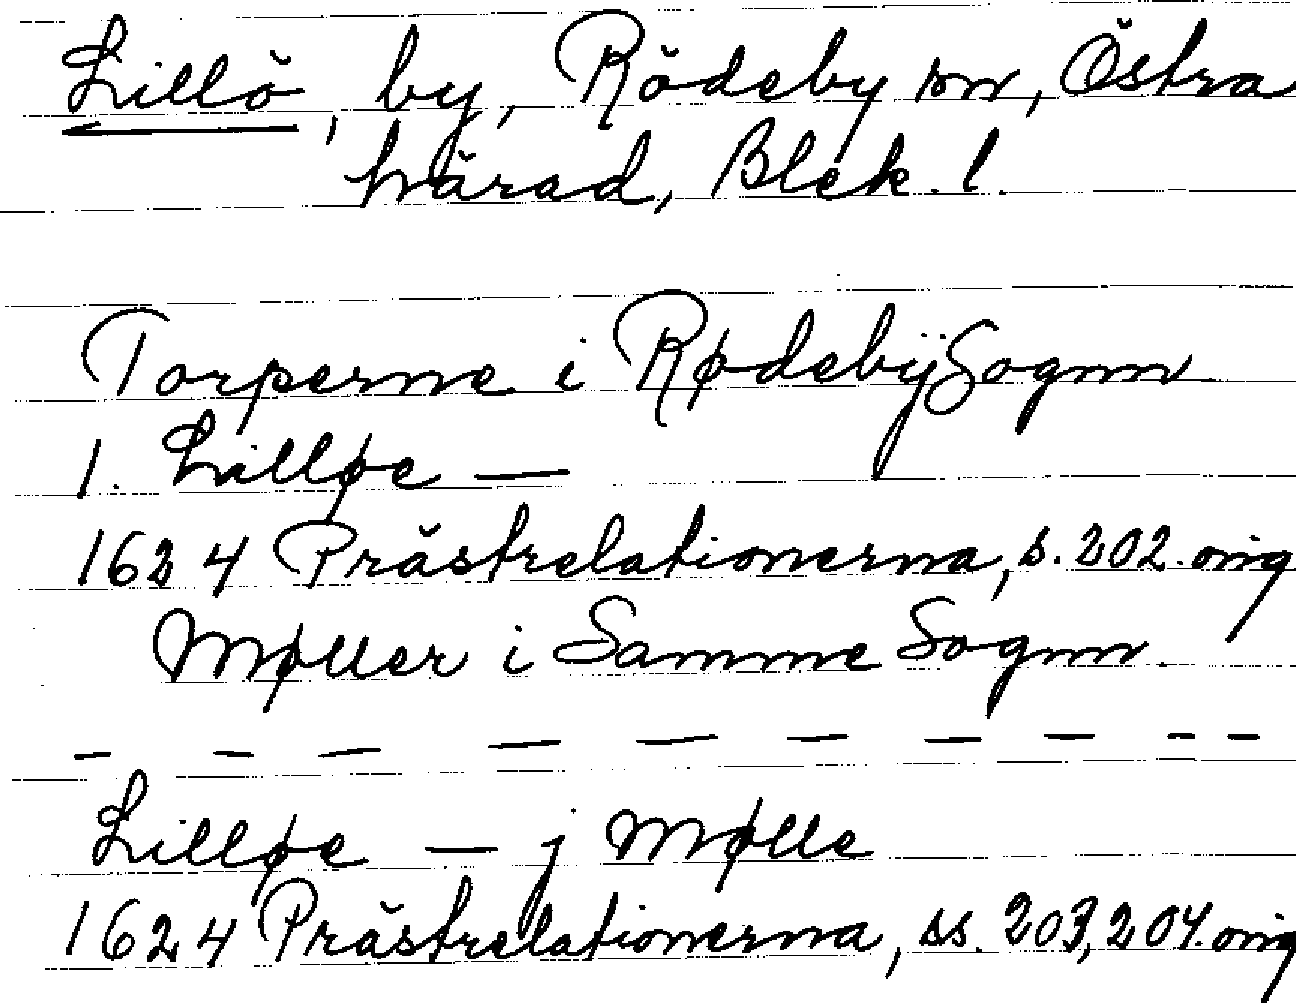 Lillö, by, Rödeby sn, Östra
härad, Blek. l.
Torperne i RødebÿSognn
1. Lilløe —
1624 Prästrelationerna, s. 202. orig
Møller i Samme Sognn.
— — — — — — — — — —
Lilløe — j Mølle
1624 Prästrelationerna, ss. 203, 204. orig